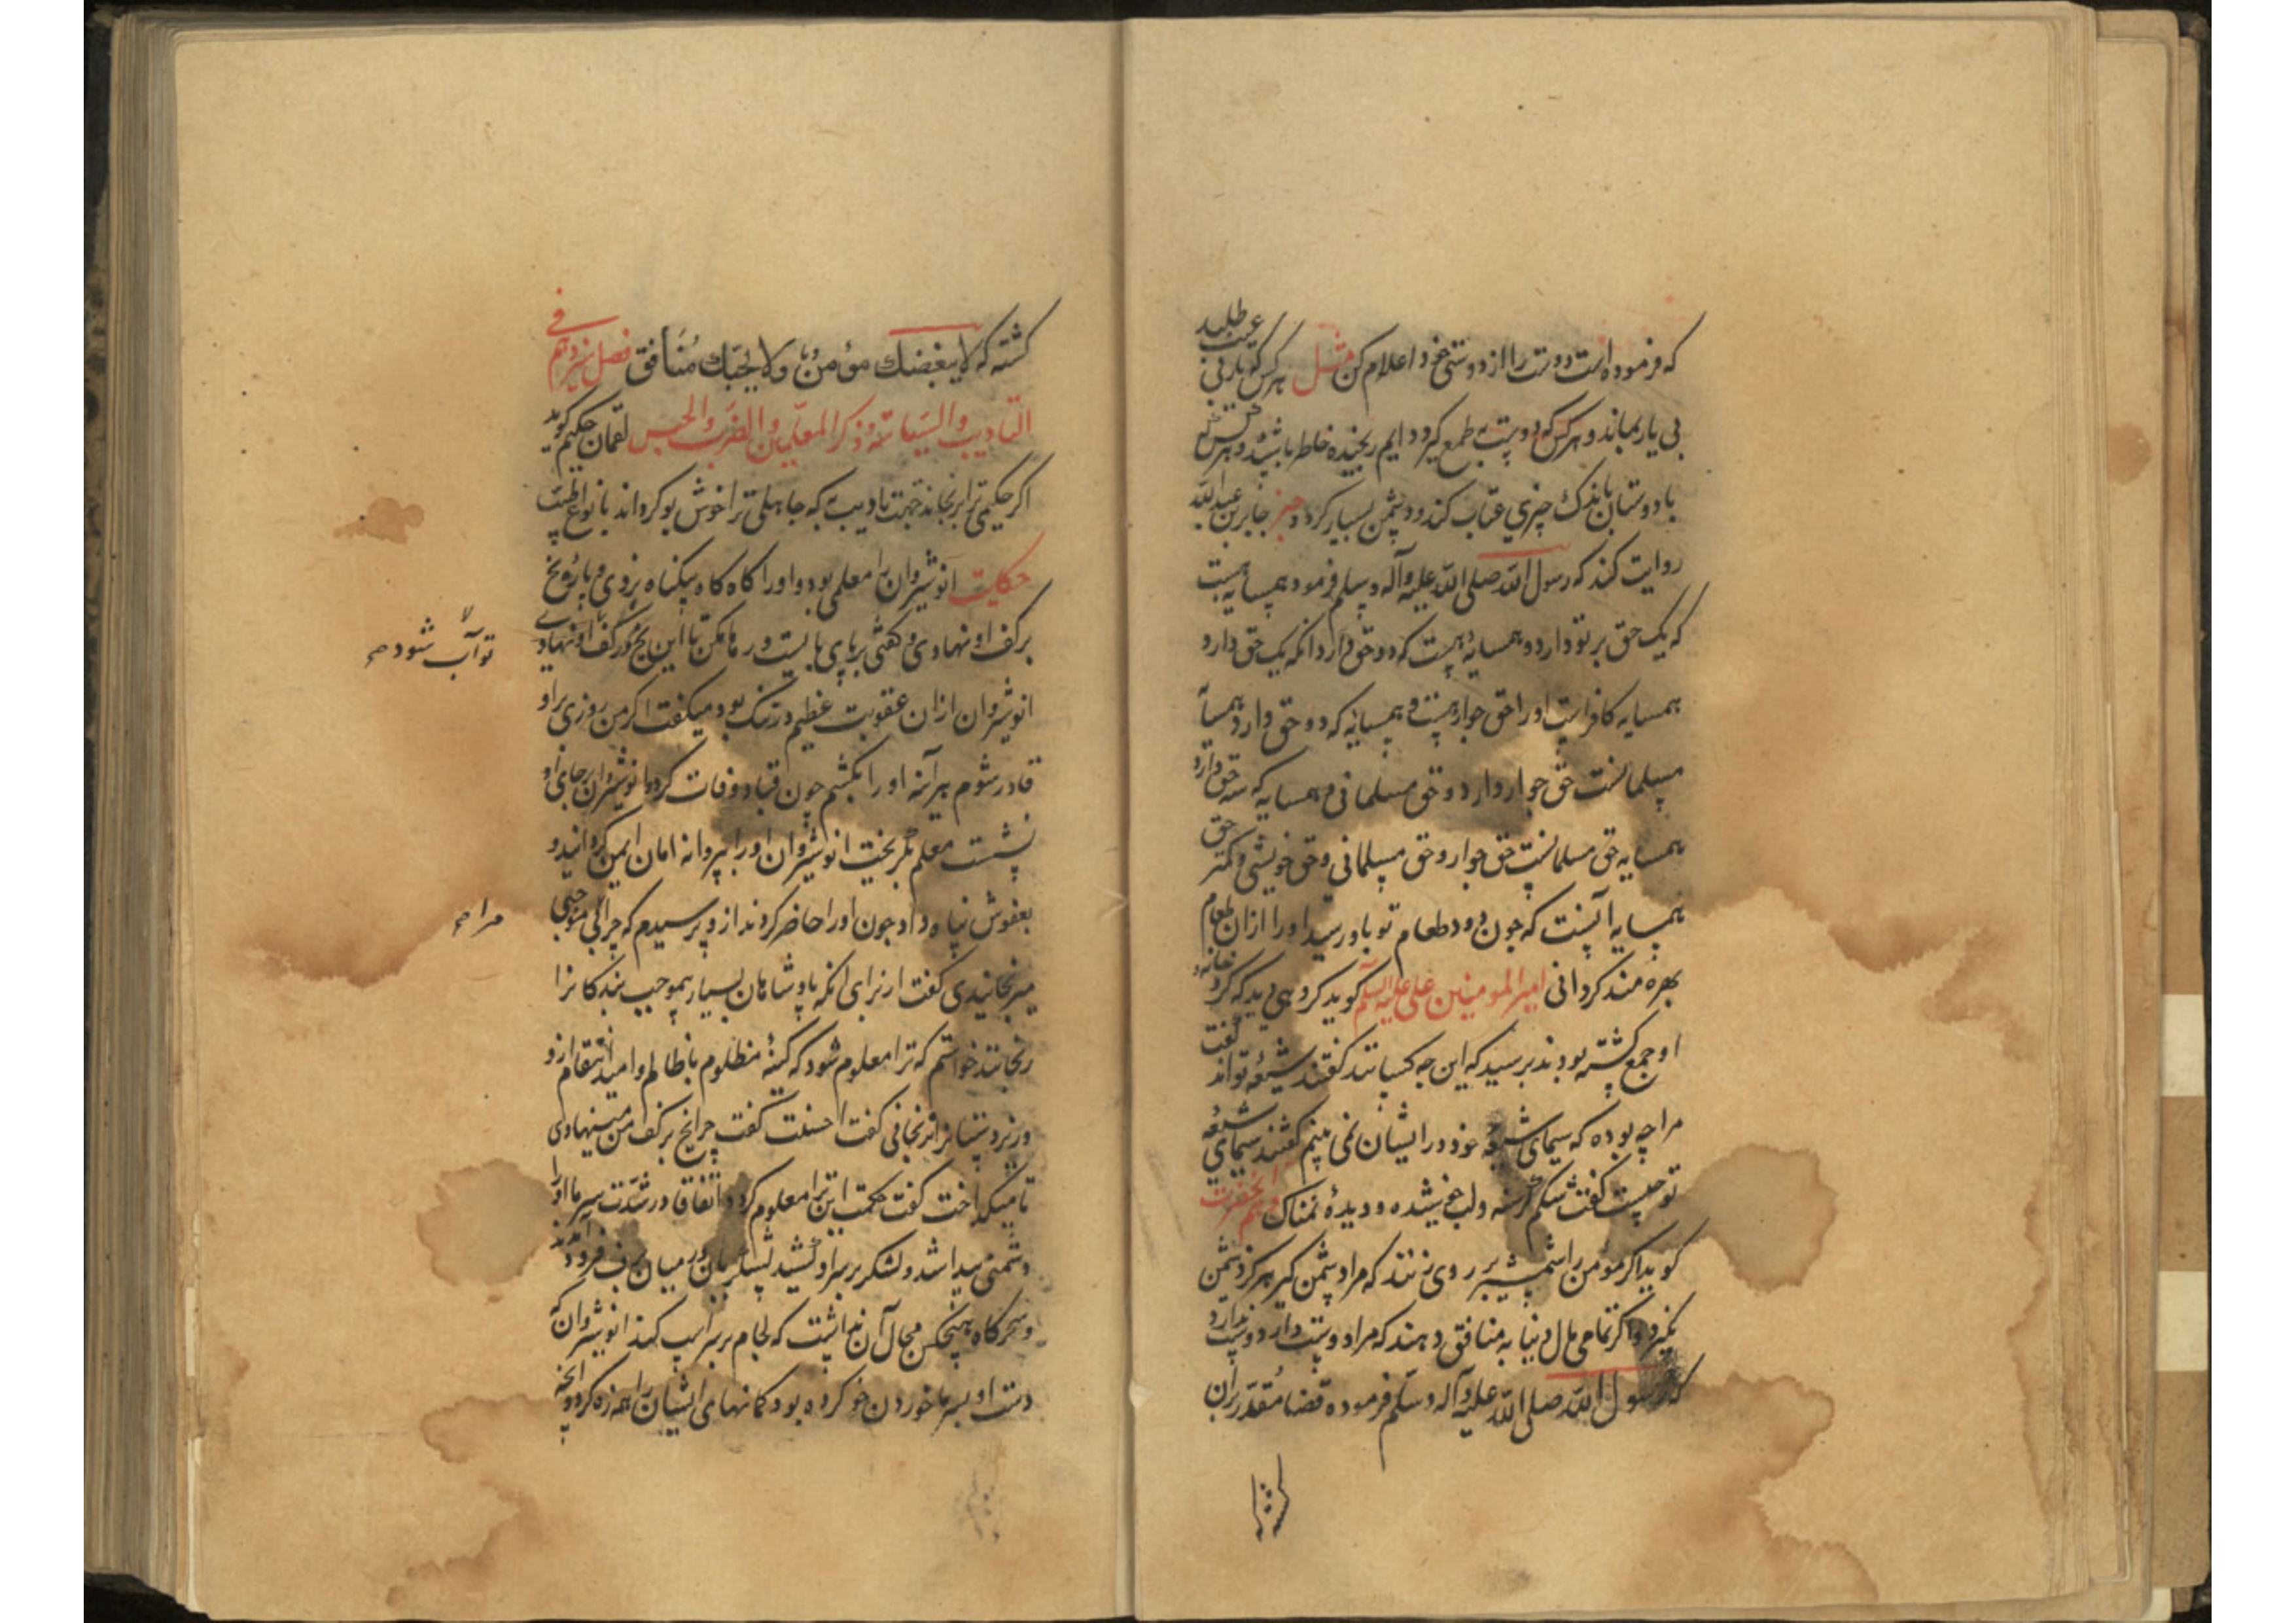 که فرموده است دوست را از دوستی خود اعلام کن مثل هرکس که یار بی عیب طلبد
بی یار بماند و هرکس که دوستی بطمع گیرد دایم رنجیده خاطر باشد و هرکس که
با دوستان باندک چیزی عتاب کند دشمن بسیار گردد خبر جابر بن عبدالله
روایت کند که رسول الله صلی الله علیه وآله وسلم فرمود همسایه هست
که یک حق بر تو دارد و همسایه هست که دو حق دارد انکه یک حق دارد
همسایه کافر است او را حق جوار هست و همسایه که دو حق دارد همسایه
مسلمانست حق جوار دارد و حق مسلمانی و همسایه که سه حق دارد
همسایه حق مسلمانست حق جوار و حق مسلمانی و حق خویشی و کمتر حق
همسایه آنست که چون دود طعام تو باو رسد او را از ان طعام
بهره مند کردانی امیر المومنین علی علیه السلم کوید کروهی دید که کرد خانه
او جمع کشته بودند پرسید که این چه کسانند گفتند شیعه تواند گفت
مرا چه بوده که سیمای شیعه خود در ایشان نمی بینم گفتند سیمای شیعه
تو چیست گفت شکم گرسنه و لب خوشیده و دیده نمناک و هم انحضرت
کوید اکر مؤمن را شمشیر بر روی زنند که مرا دشمن گیر هرکز دشمن
نگیرد و اکر تمامی مال دنیا به منافق دهند که مرا دوست دار دوست ندارد
که رسول الله صلی الله علیه وآله وسلم فرموده قضا مقدر بران
کشته
کشته که لا یبغضک مؤمن و لا یحبک منافق فصل در
التادیب والسیاسة و ذکر المعلمین والضرب والحبس لقمان حکیم کوید
اکر حکیمی ترا برنجاند جهت تادیب به که جاهلی ترا خوش بو کرداند بانواع طیب
حکایت انوشیروان را معلمی بود و او را کاه کاه بیکناه بزدی و پاره یخ
برکف او نهادی و گفتی برپای بایست و رها مکن تا این یخ در کف
تو آب شود
انوشیروان ازان عقوبت عظیم در تنک بود میکفت اکر من روزی بر او
قادر شوم هر آینه او را بکشم چون قباد وفات کرد و انوشیروان بر جای او
نشست معلم بگریخت انوشیروان او را بپروانه امان ایمن کردانید و
بعفوش پناه داد چون او را حاضر کردند از و پرسیدم که چرا بی موجبی
مرا
میرنجانیدی گفت از برای انکه پادشاهان بسیار بموجب بندکانرا
رنجانند خواستم که ترا معلوم شود که کینه مظلوم با ظالم و امید انتقام از و
گفت احسنت گفت چرا یخ برکف من مینهادی
تا میکداخت گفت حکمت این ترا معلوم گردد اتفاقا در شدت سرما او را
دشمنی پیدا شد و لشکر بر سر او کشید لشکریان در میان برف فرود آمدند
و سحرکاه هیچکس مجال آن نداشت که لجام بر سر اسب کند انوشیروان که
دست او بسرما خوردن خو کرده بود کمانهای ایشان را همه زه کرد و